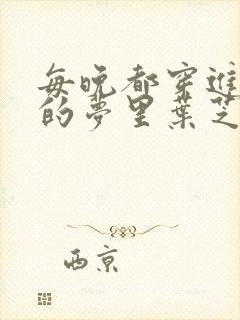 每晚都穿进
的梦里叶芝
西京